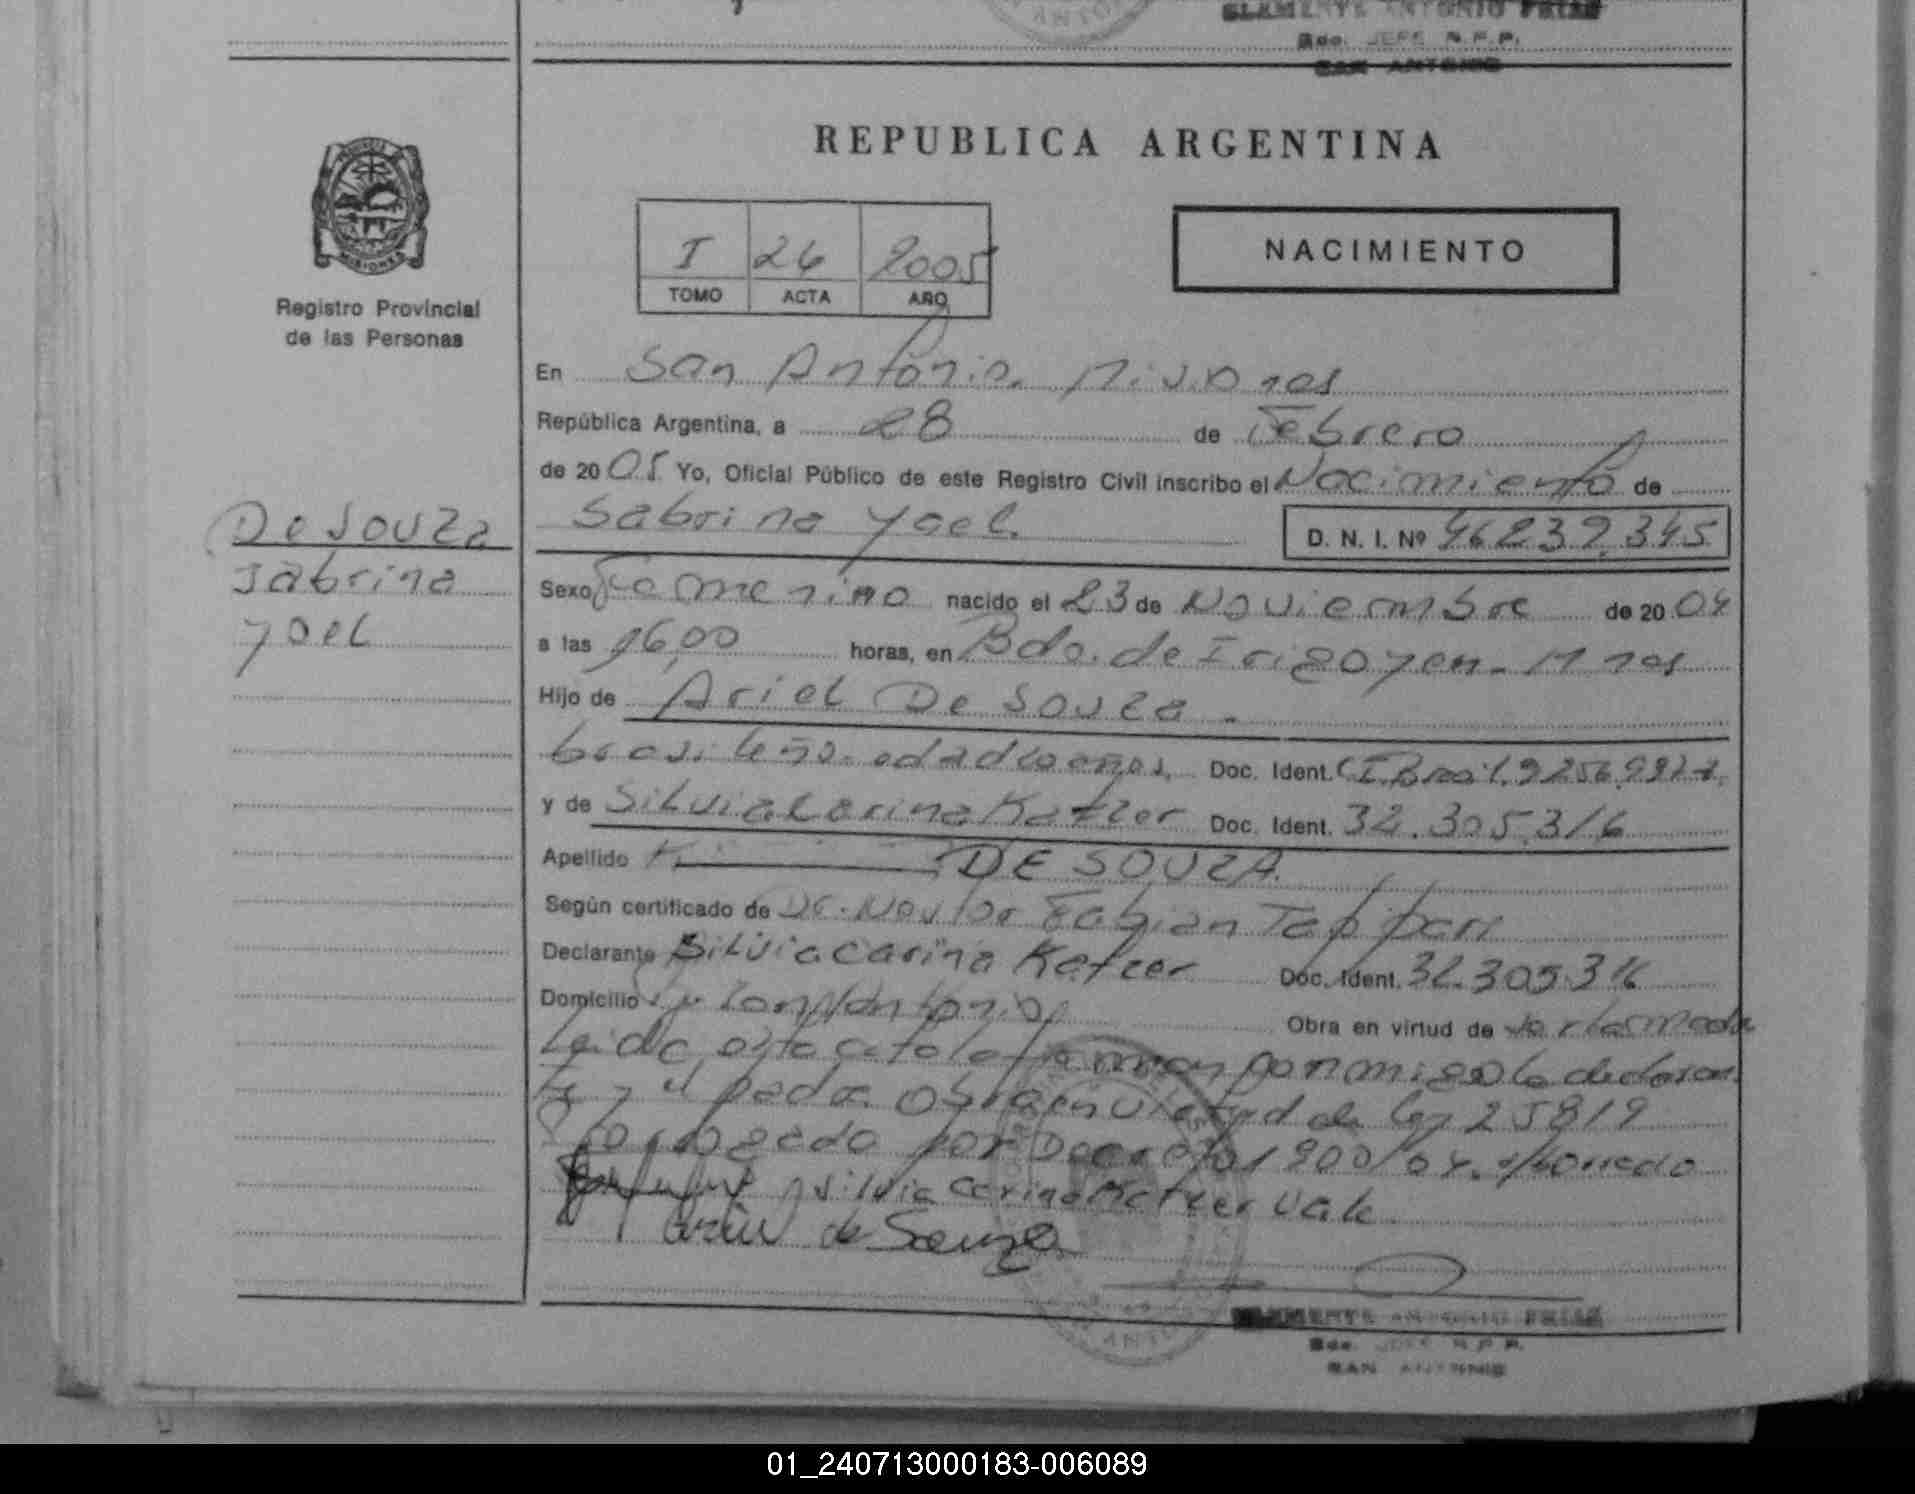 CLEMENTE ANTONIO FRIAS
Bdo. JEFE R.P.P.
SAN ANTONIO
REPUBLICA ARGENTINA
I 26 2005
TOMO ACTA AÑO
NACIMIENTO
MISIONES
Registro Provincial
de las Personas
En San Antonio. Misiones
República Argentina, a 28 de Febrero
de 20 05 Yo, Oficial Público de este Registro Civil inscribo el Nacimiento de
Sabrina Yael.
D. N. I. Nº 46.239.345
De Souza
Sabrina
Yael
Sexo Femenino nacido el 23 de Noviembre de 20 04
a las 16,00 horas, en Bdo. de Irigoyen - Mnes
Hijo de Ariel De Souza.
brasileño. edad años, Doc. Ident. C I Brasil.
y de Silvia Carina Katzer Doc. Ident. 32.305.316
Apellido DE SOUZA.
Según certificado de Dr. Nestor Fabian
Declarante Silvia Carina Katzer Doc. Ident. 32.305.316
Domicilio San Antonio Obra en virtud de
Leida esta acta la firman conmigo la declaran
te y el padre Obra en virtud de ley 25819
por Decreto 1900/04.
Silvia Carina Katzer Vale
Ariel de Souza
CLEMENTE ANTONIO FRIAS
Bdo. JEFE R.P.P.
SAN ANTONIO
01_240713000183-006089